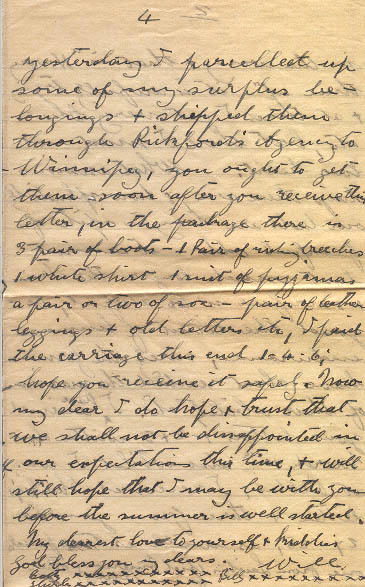 4
yesterday I parcelled up
some of my surplus be-
longings & shipped them
through Pickford's Agency to
Winnipeg, you ought to get
them soon after you receive this
letter, in the package there is
3 pair of boots - 1 Pair of riding breeches
1 white shirt 1 suit of pyjamas
a pair or two of sox - pair of leather
leggings & old letters etc, I paid
the carriage this end 1-4-6,
hope you receive it safely. Now
my dear I do hope & trust that
we shall not be disappointed in
our expectations this time, & will
still hope that I may be with you
before the summer is well started.
My dearest love to yourself & kiddies
God bless you my dears. Will.
xxxxxxxxxxxx
xxxxxxxxxxxx